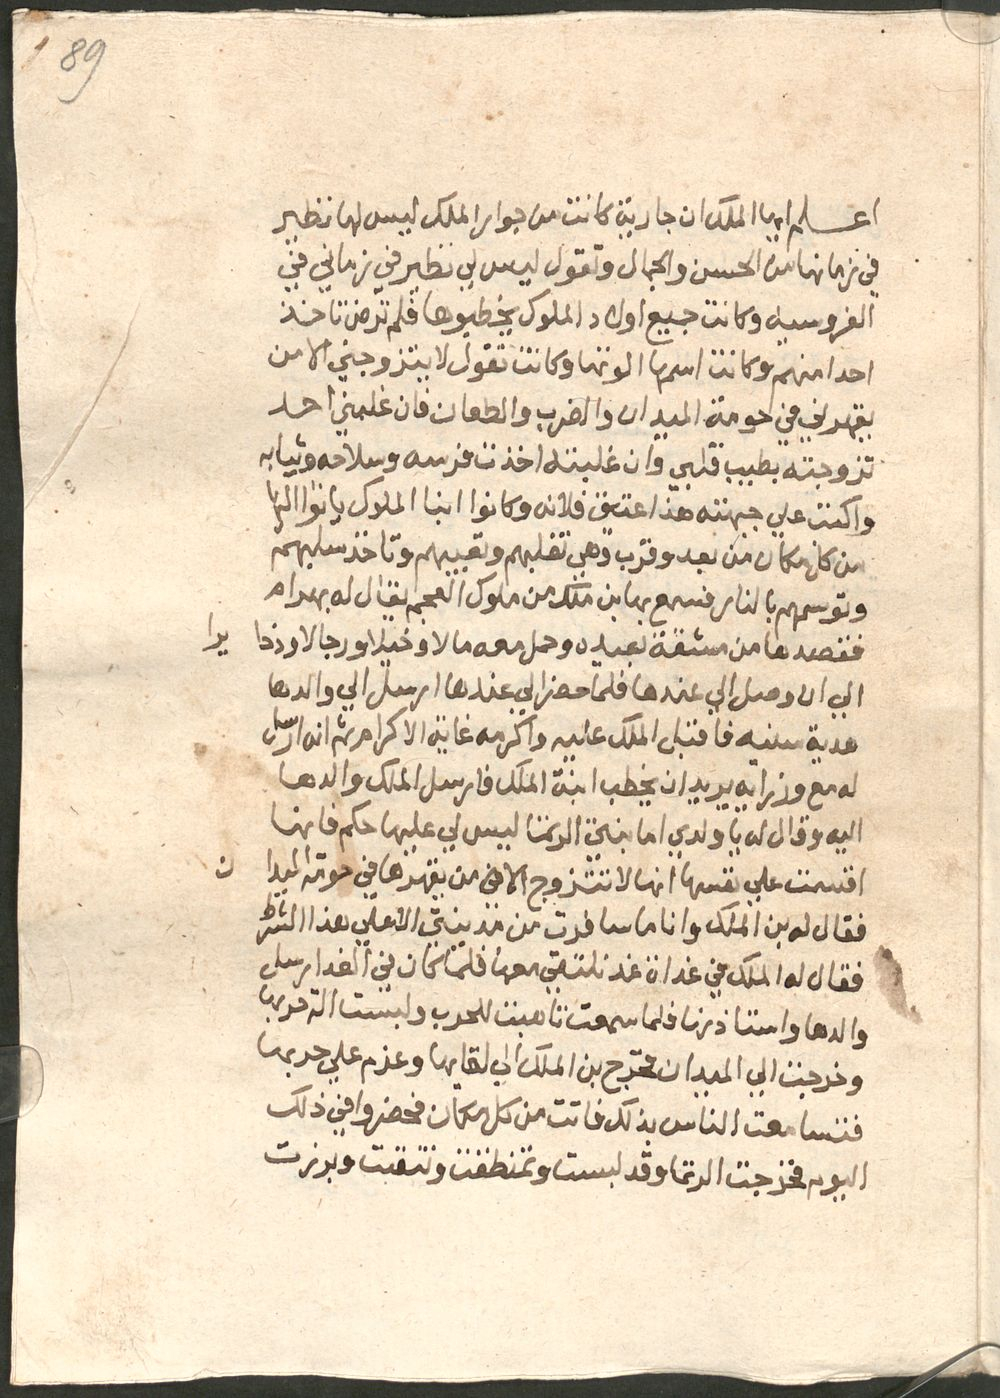 89
اعلم ايها الملك ان جارية كانت من جوار الملك ليس لها نظير
في زمانها من الحسن والجمال وتقول ليس لي نظير في زماني في
الفروسيه وكانت جميع اولاد الملوك يخطبوها فلم ترض تاخذ
احدا منهم وكانت اسمها الوتنما وكانت تقول لا يتزوجني الا من
يقهرني في حومة الميدان والضرب والطعان فان غلبني احد
تزوجته بطيب قلبي وان غلبته اخذت فرسه وسلاحه وثيابه
واكتب علي جبهته هذا عتيق فلانه وكانوا ابنا الملوك ياتوا اليها
من كل مكان من بعد وقرب وهي تغلبهم وتعيبهم وتاخذ سلبهم
وتوسمهم بالنار فسمع بها بن ملك من ملوك العجم يقال له بهرام
فقصدها من مشقة بعيده وحمل معه مالا وخيلا ورجالا وذخا يرا
الي ان وصل الي عندها فلما حضر الي عندها ارسل الي والدها
هدية سنيه فاقبل الملك عليه واكرمه غاية الاكرام ثم انه ارسل
له مع وزرايه يريد ان يخطب ابنة الملك فارسل الملك والدها
اليه وقال له يا ولدي اما بنتي الدتما ليس لي عليها حكم فانها
اقسمت علي نفسها انها لا تتزوج الا في من يقهرها في حومة الميدا ن
فقال له بن الملك وانا ما سافرت من مدينتي الا علي هذا الشرط
فقال له الملك في غداة غد نلتقي معها فلما كان في الغد ارسل
والدها واستاذنها فلما سمعت تاهبت للحرب ولبست الة حربها
وخرجت الي الميدان فخرج بن الملك الي لقايها وعزم علي حربها
فتسامعت الناس بذلك فاتت من كل مكان فحضروا في ذلك
اليوم فخرجت الدتما وقد لبست وتمنطقت وتنقبت وبرزت